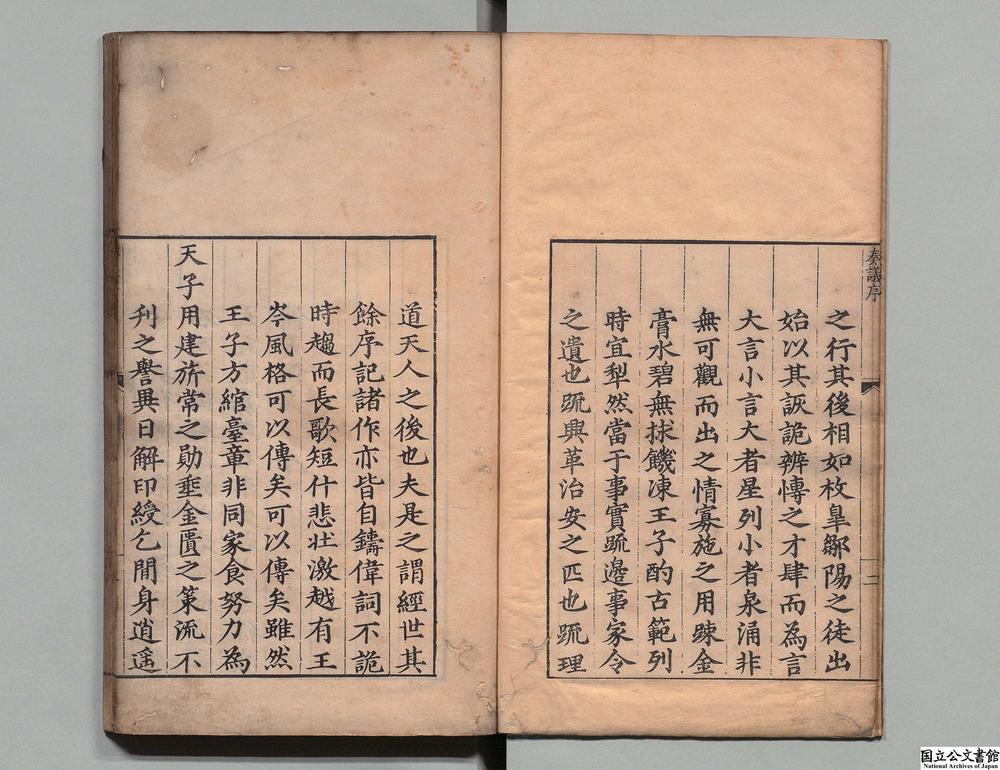 奏議序
二
之行其後相如枚臯鄒陽之徒出
始以其詼詭辨愽之才肆而為言
大言小言大者星列小者泉涌非
無可觀而出之情寡施之用踈金
膏水碧無捄饑凍王子酌古範列
時宜犁然當于事實䟽邊事家令
之遺也䟽興革治安之匹也䟽理
道天人之後也夫是之謂經世其
餘序記諸作亦皆自鑄偉詞不詭
時趨而長歌短什悲壮激越有王
岑風格可以傳矣可以傳矣雖然
王子方綰臺章非同家食努力為
天子用建旂常之勛埀金匱之策流不
刋之譽異日解印綬乞閒身逍遥
国立公文書館
National Archives of Japan